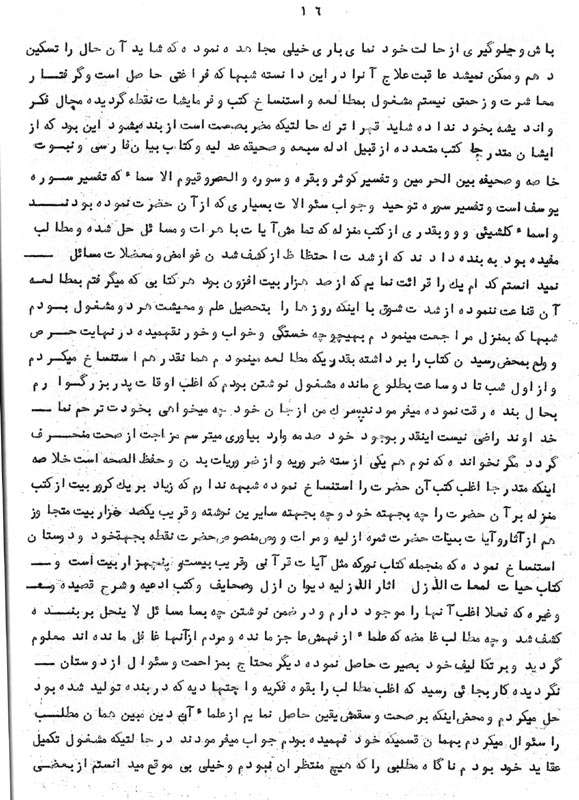 ١٦
باش و جلوگیری از حالت خود نمای باری خیلی مجاهده نموده که شاید آن حال را تسکین
دهم و ممکن نمیشد عاقبت علاج آنرا در این دانسته شبها که فراغتی حاصل است و گرفتار
معاشرت و زحمتی نیستم مشغول بمطالعه و استنساخ کتب و فرمایشات نقطه گردیده مجال فکر
و اندیشه بخود نداده شاید قهرا ترک حالتیکه مضر بصحت است از بنده بشود این بود که از
ایشان متدرجا کتب متعدده از قبیل ادله سبعه و صحیفه عدلیه و کتاب بیان فارسی و نبوت
خاصه و صحیفه بین الحرمین و تفسیر کوثر و بقره و سوره و العصر و قیوم الاسماء که تفسیر سوره
یوسف است و تفسیر سوره توحید و جواب سئوالات بسیاری که از آن حضرت نموده بودند
و اسماء کلشیئی و و و بقدری از کتب منزله که تمامش آیات باهرات و مسائل حل شده و مطالب
مفیده بود به بنده دادند که از شدت احتظاظ از کشف شدن غوامض و معضلات مسائل
نمیدانستم کدام یک را قرائت نمایم که از صد هزار بیت افزون بود هر کتابی که میگرفتم بمطالعه
آن قناعت ننموده از شدت شوق با اینکه روزها را بتحصیل علم و معیشت هر دو مشغول بودم
شبها که بمنزل مراجعت مینمودم بهیچوجه خستگی و خواب و خور نفهمیده در نهایت حرص
و ولع بمحض رسیدن کتاب را برداشته بقدریکه مطالعه مینمودم همانقدر هم استنساخ میکردم
و از اول شب تا دو ساعت بطلوع مانده مشغول نوشتن بودم که اغلب اوقات پدر بزرگوارم
بحال بنده رقت نموده میفرمودند پسرک من از جان خود چه میخواهی بخودت ترحم نما
خداوند راضی نیست اینقدر بوجود خود صدمه وارد بیاوری میترسم مزاجت از صحت منحرف
گردد مگر نخوانده که نوم هم یکی از سته ضروریه و از ضروریات بدن و حفظ الصحه است خلاصه
اینکه متدرجا اغلب کتب آن حضرت را استنساخ نموده شبهه ندارم که زیاد بر یک کرور بیت از کتب
منزله بر آن حضرت را چه بجهته خود و چه بجهته سایرین نوشته و قریب یکصد هزار بیت متجاوز
هم از آثار و آیات بینات حضرت ثمره ازلیه و مرات و وصی منصوص حضرت نقطه بجهة خود و دوستان
استنساخ نموده که منجمله کتاب نور که مثل آیات قرآنی و قریب بیست و پنجهزار بیت است و
کتاب حیات لمعات الازل آثار الازلیه دیوان ازل و صحایف و کتب ادعیه و شرح قصیده و
و غیره که فعلا اغلب آنها را موجود دارم و در ضمن نوشتن چه بسا مسائل لاینحل بر بنده
کشف شد و چه مطالب غامضه که علماء از فهمش عاجز مانده و مردم از آنها غافل مانده اند معلوم
گردید و بر تکالیف خود بصیرت حاصل نموده دیگر محتاج بمزاحمت و سئوال از دوستان
نگردیده کار بجائی رسید که اغلب مطالب را بقوه فکریه و اجتهادیه که در بنده تولید شده بود
حل میکردم و محض اینکه بر صحت و سقمش یقین حاصل نمایم از علماء آن دین مبین همان مطلب
را سئوال میکردم بهمان قسمیکه خود فهمیده بودم جواب میفرمودند در حالتیکه مشغول تکمیل
عقاید خود بودم ناگاه مطلبی را که هیچ منتظر آن نبودم و خیلی بی موقع میدانستم از بعضی